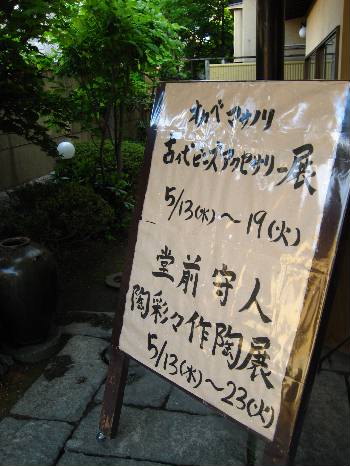 オカベマサノリ
古代ビーズアクセサリー展
5/13(水)〜19(火)
堂前守人
陶彩々作陶展
5/13(水)〜23(火)